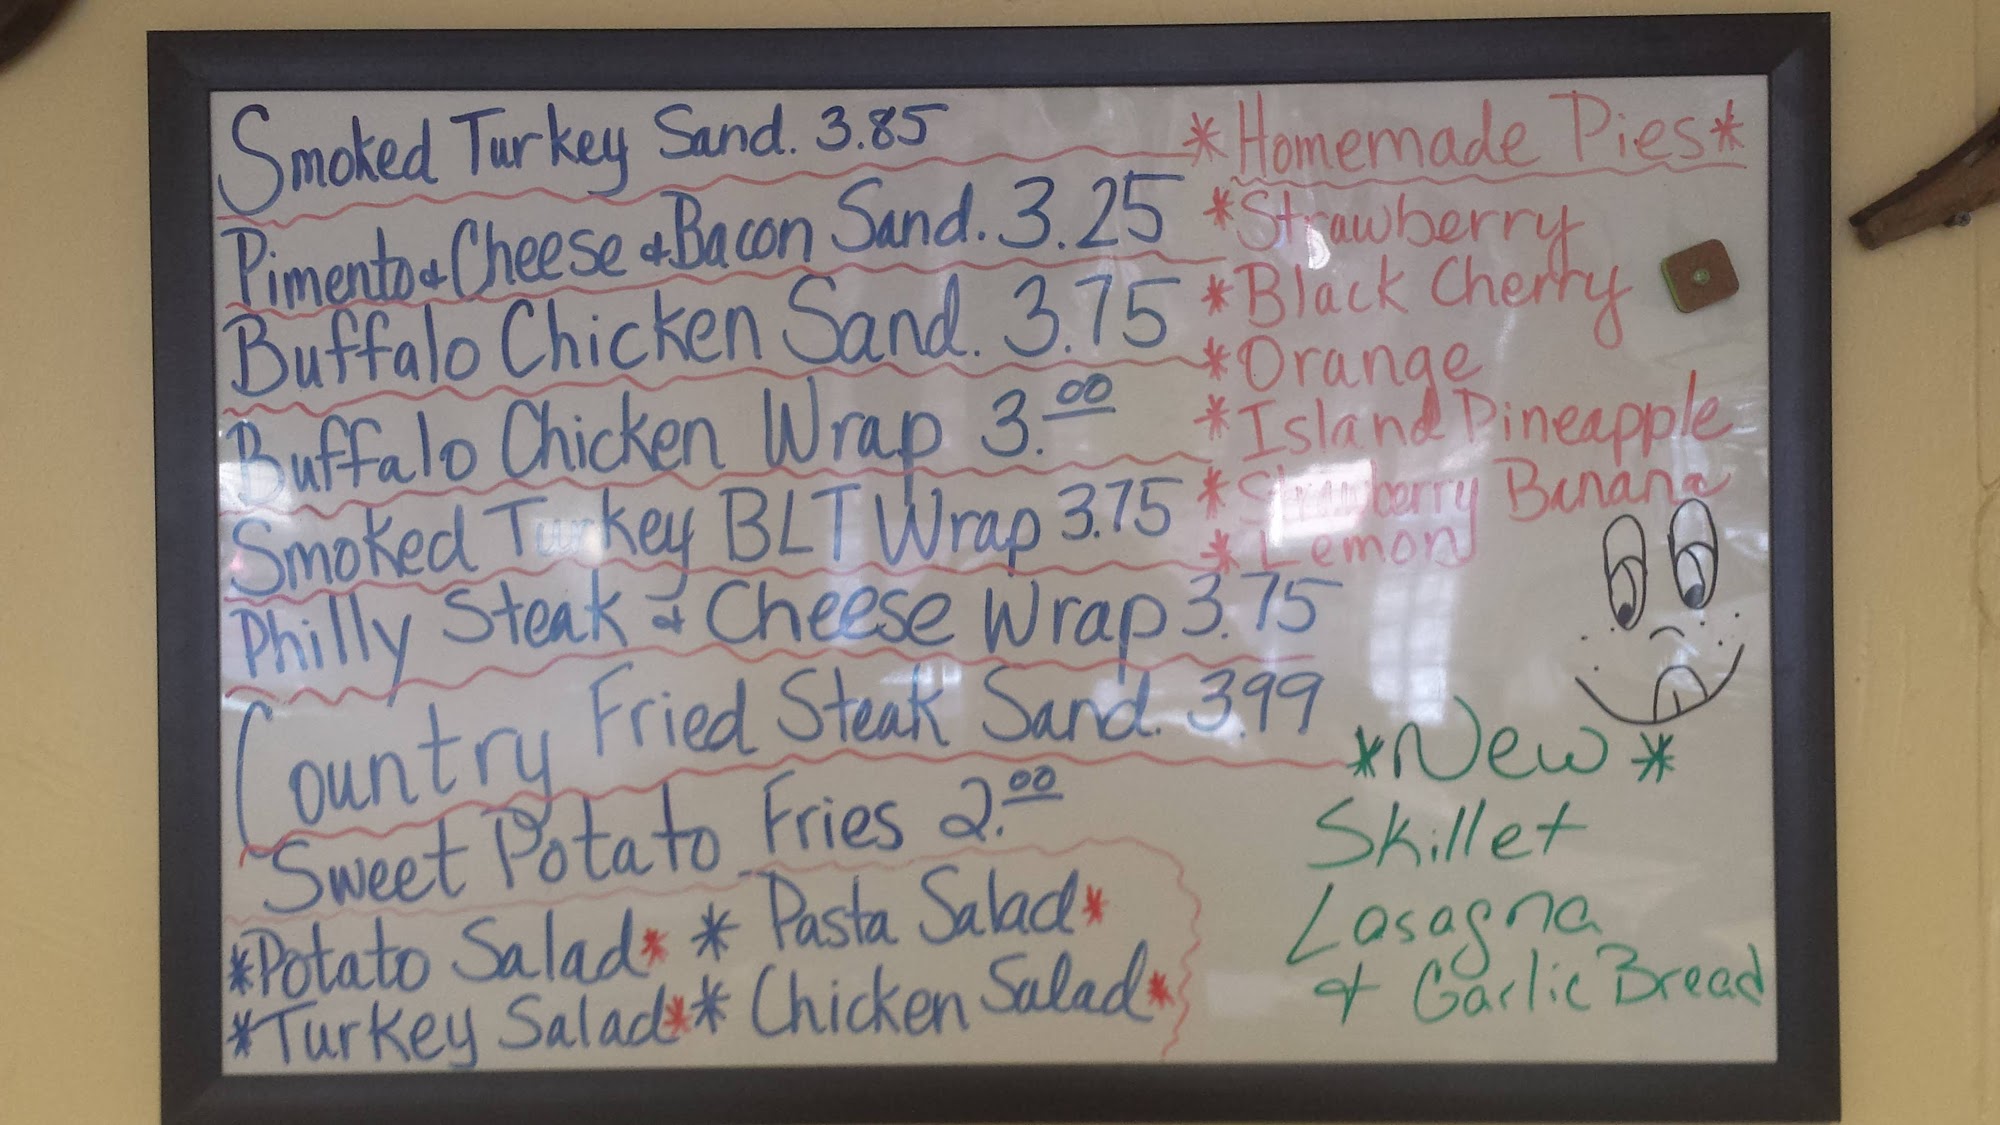 Smoked Turkey Sand. 3.85
Pimento & Cheese & Bacon Sand. 3.25
Buffalo Chicken Sand. 3.75
Buffalo Chicken Wrap 3.00
Smoked Turkey BLT Wrap 3.75
Philly Steak & Cheese Wrap 3.75
Country Fried Steak Sand. 3.99
Sweet Potato Fries 2.00
*Potato Salad* * Pasta Salad*
*Turkey Salad* * Chicken Salad*
*Homemade Pies*
*Strawberry
*Black Cherry
*Orange
*Island Pineapple
*Strawberry Banana
*Lemon
*New*
Skillet
Lasagna
& Garlic Bread